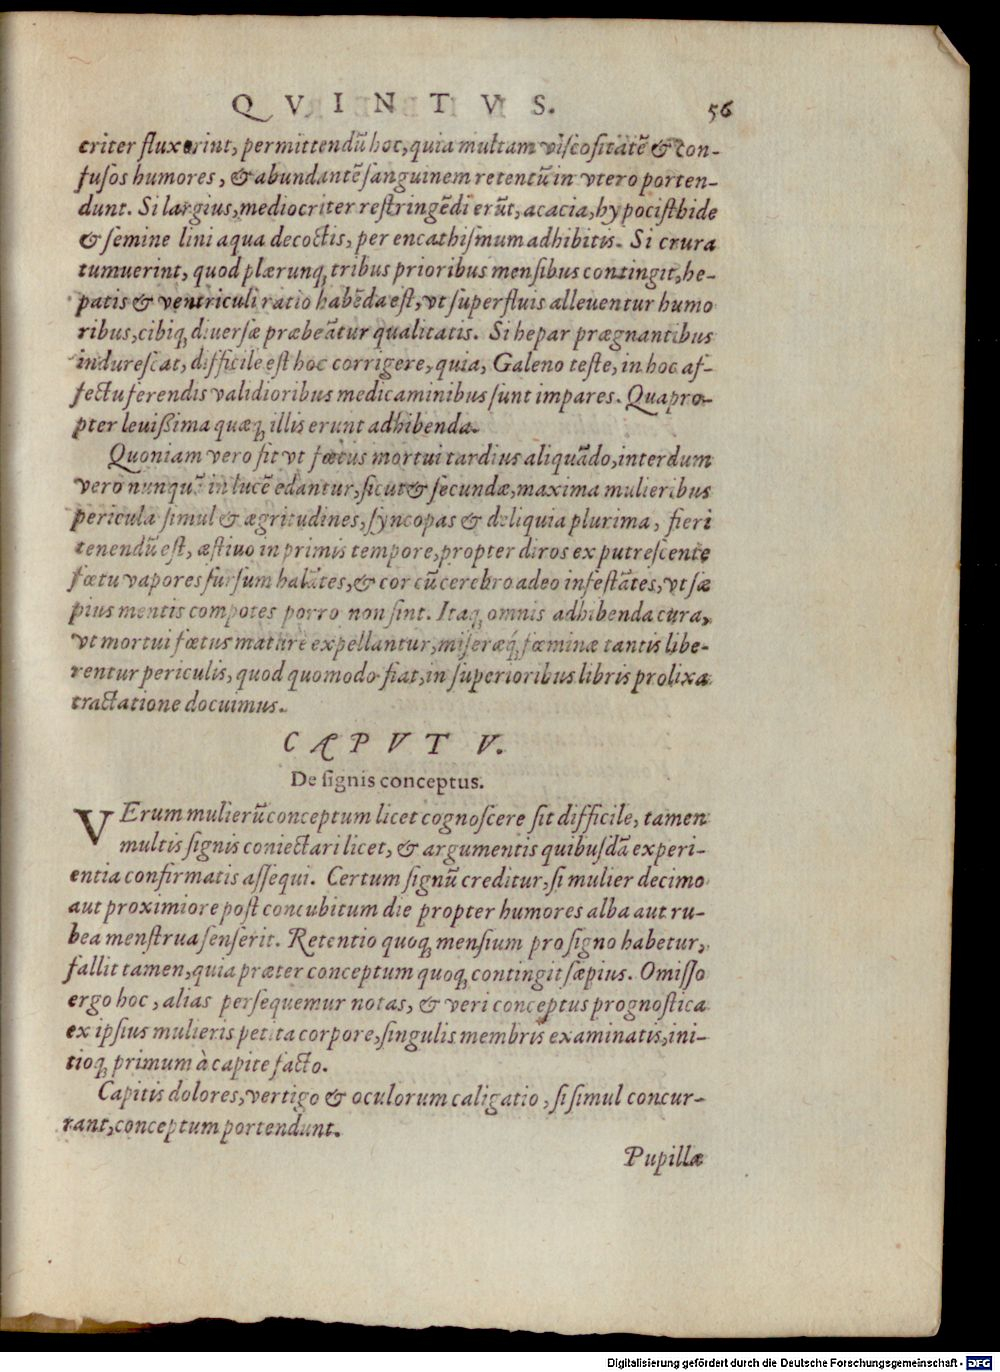 QVINTVS. 56
criter fluxerint, permittendũ hoc, quia multam viscositatẽ & con-
fusos humores, & abundantẽ sanguinem retentũ in vtero porten-
dunt. Si largius, mediocriter restringẽdi erũt, acacia, hypocisthide
& semine lini aqua decoctis, per encathismum adhibitis. Si crura
tumuerint, quod plærunq; tribus prioribus mensibus contingit, he-
patis & ventriculi ratio habẽda est, vt superfluis alleuentur humo
ribus, cibiq; diuersæ præbeãtur qualitatis. Si hepar prægnantibus
indurescat, difficile est hoc corrigere, quia, Galeno teste, in hoc af-
fectu ferendis validioribus medicaminibus sunt impares. Quapro-
pter leuißima quæq; illis erunt adhibenda.
Quoniam vero fit vt fœtus mortui tardius aliquãdo, interdum
vero nunquã in lucẽ edantur, sicut & secundæ, maxima mulieribus
pericula simul & ægritudines, syncopas & deliquia plurima, fieri
tenendũ est, æstiuo inprimis tempore, propter diros ex putrescente
fœtu vapores sursum halãtes, & cor cũ cerebro adeo infestãtes, vt sæ
pius mentis compotes porro non sint. Itaq; omnis adhibenda cura,
vt mortui fœtus mature expellantur, miseræq́; fœminæ tantis libe-
rentur periculis, quod quomodo fiat, in superioribus libris prolixa
tractatione docuimus.
CAPVT V.
De signis conceptus.
VErum mulierũ conceptum licet cognoscere sit difficile, tamen
multis signis coniectari licet, & argumentis quibusdã experi-
entia confirmatis assequi. Certum signũ creditur, si mulier decimo
aut proximiore post concubitum die propter humores alba aut ru-
bea menstrua senserit. Retentio quoq; mensium pro signo habetur,
fallit tamen, quia præter conceptum quoq; contingit sæpius. Omisso
ergo hoc, alias persequemur notas, & veri conceptus prognostica
ex ipsius mulieris petita corpore, singulis membris examinatis, ini-
tioq; primum à capite facto.
Capitis dolores, vertigo & oculorum caligatio, si simul concur-
rant, conceptum portendunt.
Pupillæ
Digitalisierung gefördert durch die Deutsche Forschungsgemeinschaft - DFG